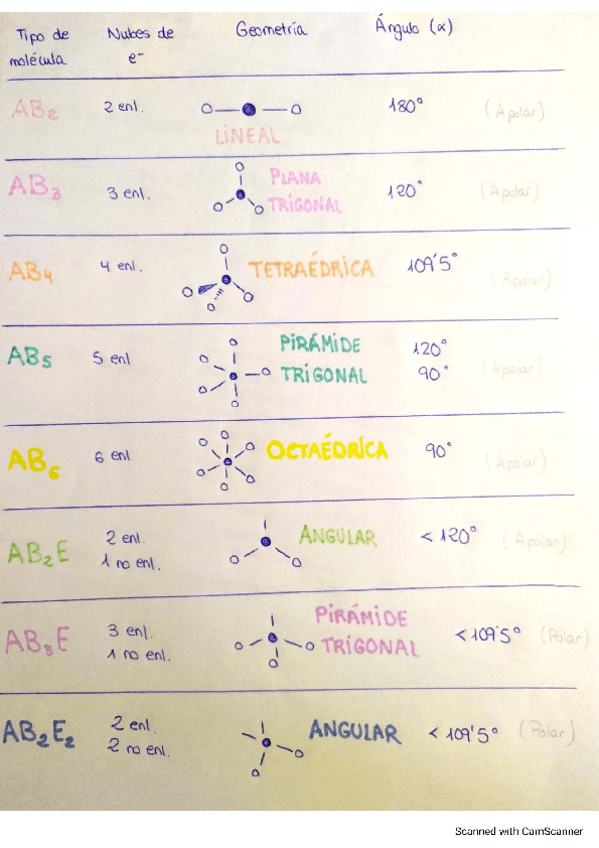 Tipo de molécula Nubes de e⁻ Geometría Ángulo (α)
AB₂ 2 enl. LINEAL 180° (Apolar)
AB₃ 3 enl. PLANA TRIGONAL 120° (Apolar)
AB₄ 4 enl. TETRAÉDRICA 109'5° (Apolar)
AB₅ 5 enl PIRÁMIDE TRIGONAL 120° 90° (Apolar)
AB₆ 6 enl OCTAÉDRICA 90° (Apolar)
AB₂E 2 enl. 1 no enl. ANGULAR < 120° (Apolar)
AB₃E 3 enl. 1 no enl. PIRÁMIDE TRIGONAL < 109'5° (Polar)
AB₂E₂ 2 enl. 2 no enl. ANGULAR < 109'5° (Polar)
Scanned with CamScanner